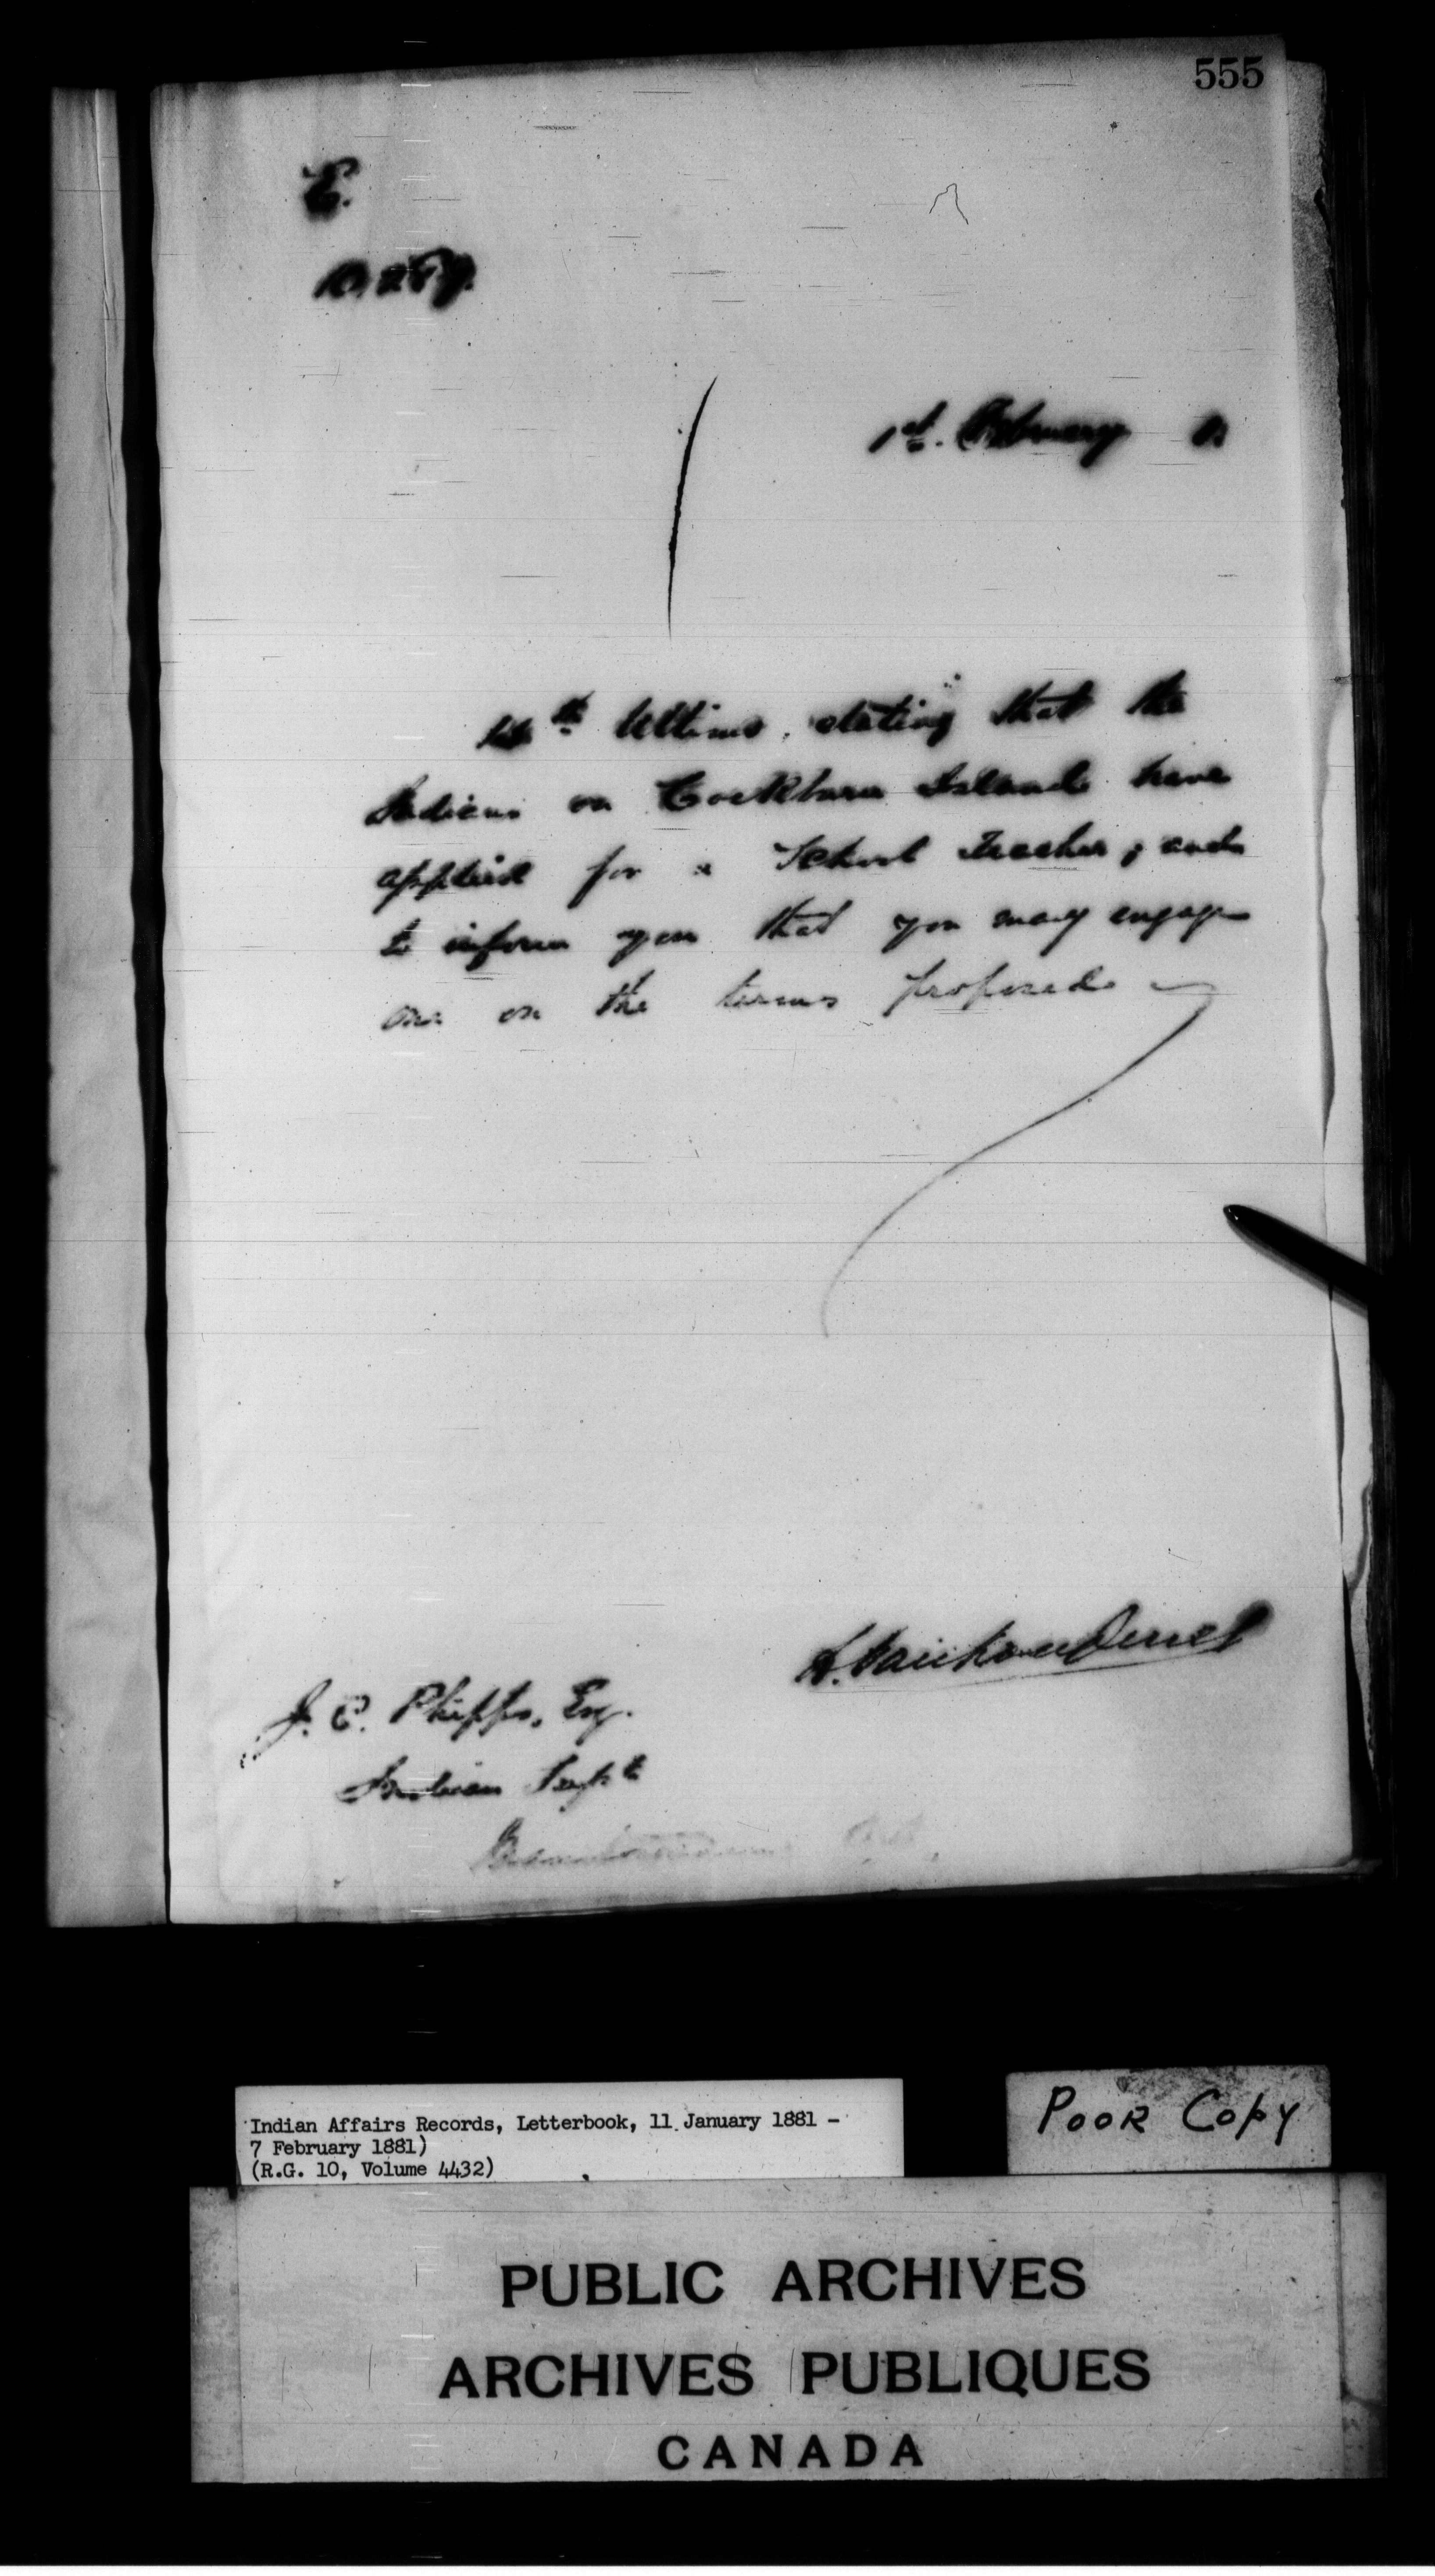 555
E.
1st. February
th Ultimo, stating that the
Indians on Cockburn Island have
applied for a School Teacher; and
to inform you that you may engage
one on the terms proposed
L. Vankoughnet
J. C. Phipps, Esq.
Indian Supt
Indian Affairs Records, Letterbook, 11 January 1881 -
7 February 1881)
(R.G. 10, Volume 4432)
POOR COPY
PUBLIC ARCHIVES
ARCHIVES PUBLIQUES
CANADA